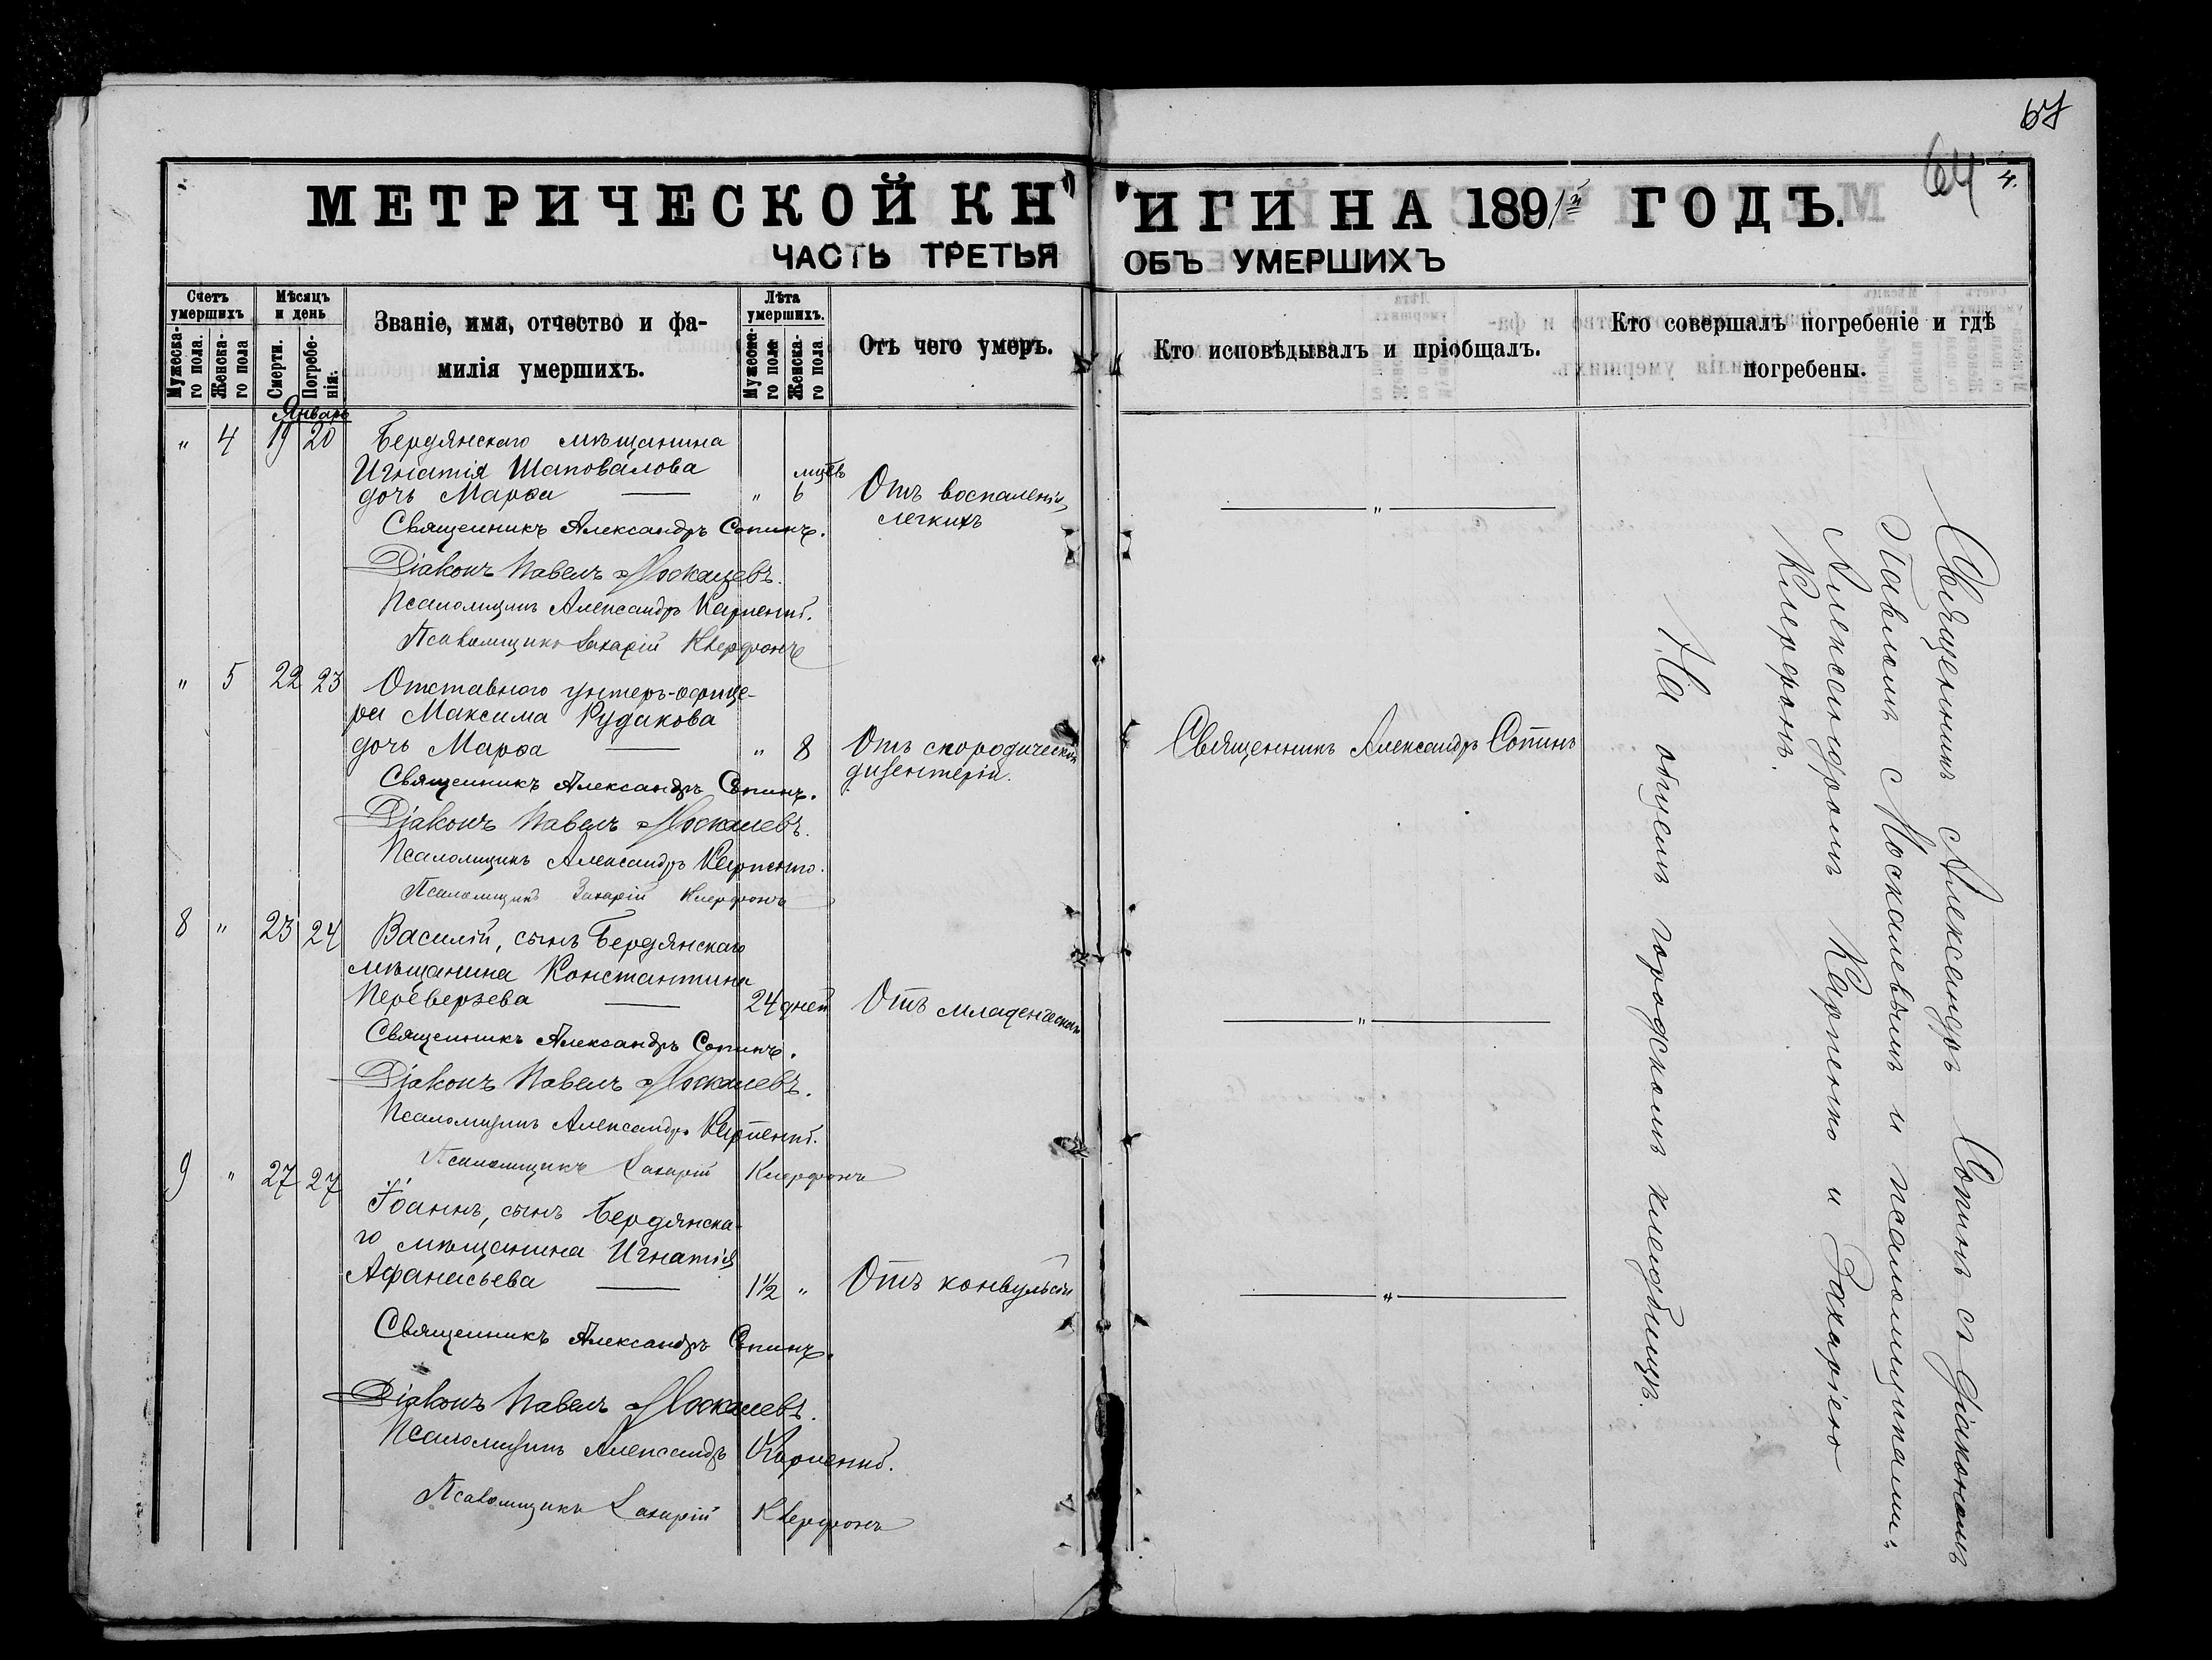 67
64
4.
МЕТРИЧЕСКОЙ КНИГИ НА 1891й ГОДЪ.
ЧАСТЬ ТРЕТЬЯ ОБЪ УМЕРШИХЪ
Счетъ умершихъ.
Мужеска-го пола.
Женска-го пола
Мѣсяцъ и день
Смерти.
Погребе-нія.
Званіе, имя, отчество и фа-
милія умершихъ.
Лѣта умершихъ.
Мужеска-го пола
Женска-го пола.
Отъ чего умеръ.
Кто исповѣдывалъ и пріобщалъ.
Кто совершалъ погребеніе и гдѣ
погребены.
Январь
" 4 19 20 Бердянскаго мѣщанина
Игнатія Шаповалова
дочь Марѳа — " 6 мцевъ Отъ воспаленія
легкихъ
— " —
Священникъ Александръ Сопинъ.
Діаконъ Павелъ Москалевъ.
Псаломщикъ Александръ Карпенко.
Псаломщикъ Захарій Клерфонъ
" 5 22 23 Отставного унтеръ-офице-
ра Максима Рудакова
дочь Марѳа — " 8 Отъ спородической
дизентеріи.
Священникъ Александръ Сопинъ
Священникъ Александръ Сопинъ.
Діаконъ Павелъ Москалевъ.
Псаломщикъ Александръ Карпенко.
Псаломщикъ Захарій Клерфонъ
8 " 23 24 Василій, сынъ Бердянскаго
мѣщанина Константина
Переверзева — 24 дней Отъ младенческой
— " —
Священникъ Александръ Сопинъ.
Діаконъ Павелъ Москалевъ.
Псаломщикъ Александръ Карпенко.
Псаломщикъ Захарій Клерфонъ
9 " 27 27 Іоаннъ, сынъ Бердянска-
го мѣщанина Игнатія
Афанасьева — 1½ " Отъ конвульсіи
— " —
Священникъ Александръ Сопинъ.
Діаконъ Павелъ Москалевъ.
Псаломщикъ Александръ Карпенко.
Псаломщикъ Захарій Клерфонъ
Священникъ Александръ Сопинъ съ діакономъ
Павломъ Москалевымъ и псаломщиками:
Александромъ Карпенко и Захаріею
Клерфонъ.
На общемъ городскомъ кладбищѣ.